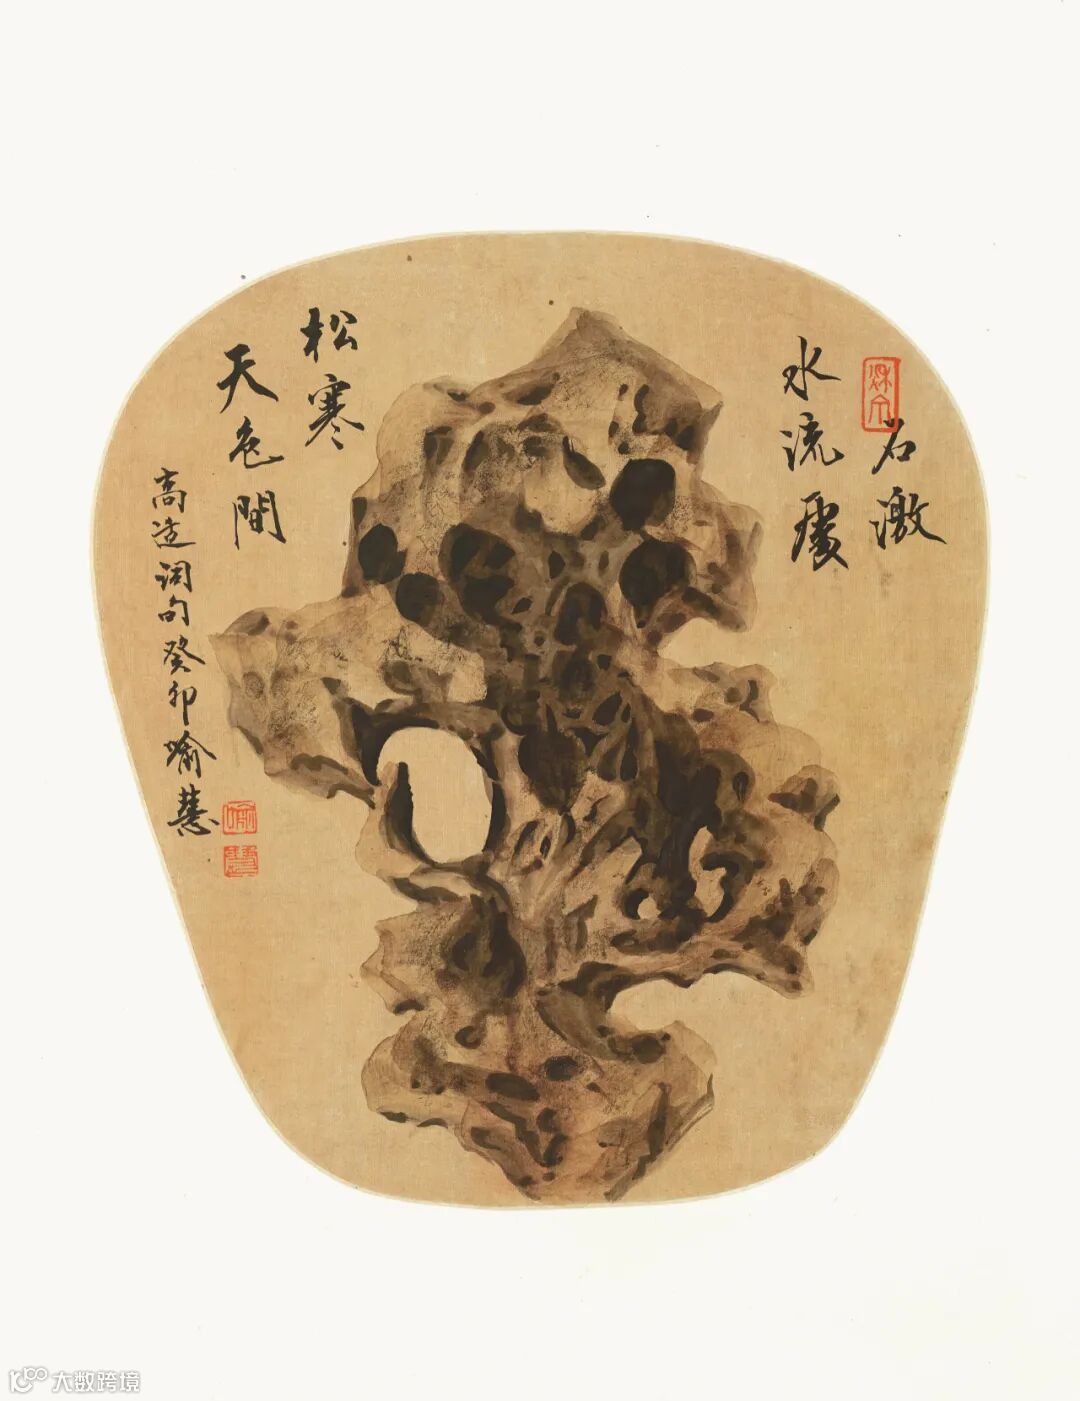 石激
水流處
松寒
天色間
高适詞句癸卯喻慧
喻
慧
大数跨境